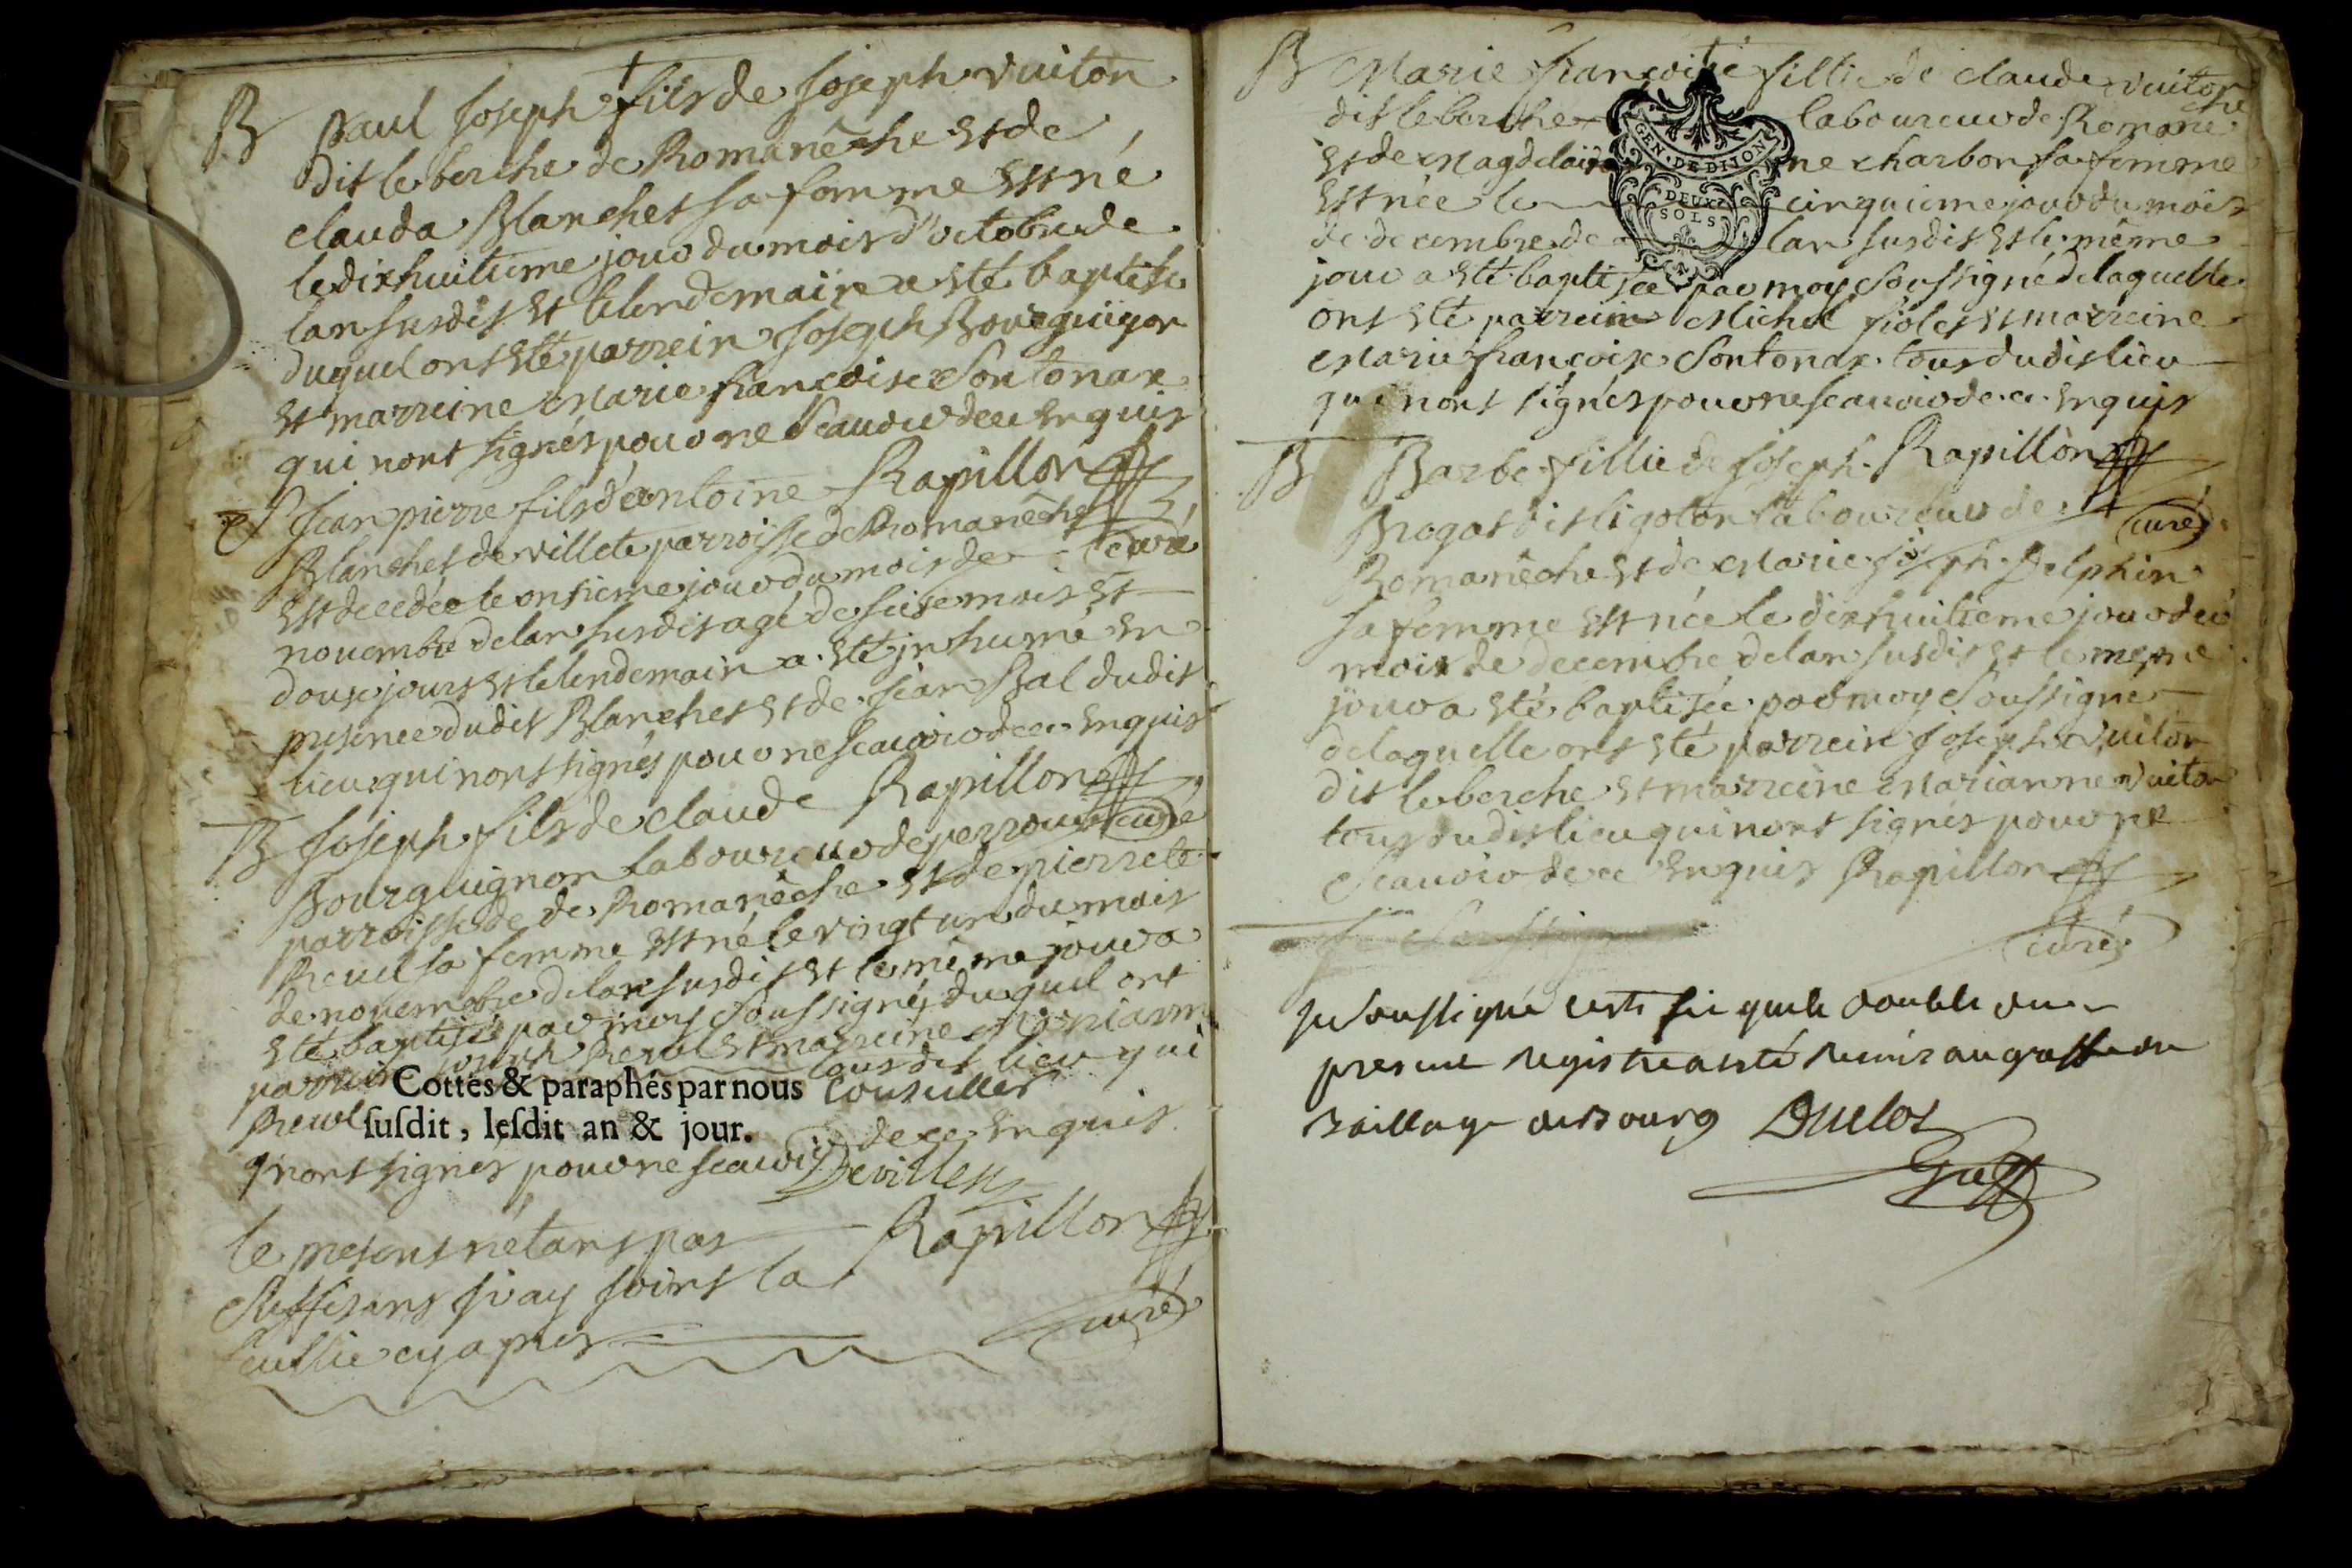 B Paul Joseph fils de Joseph Vuiton
dit le berche de Romanêche Et de
clauda Blanchet sa femme Est né
le dixhuitieme jour du mois d'octobre de
lan susdit Et le lendemain a Eté baptisé
duquel ont Eté parrein Joseph Bourguignon
Et marreine Marie francoise Sontonax
qui nont signés pour ne Scauoir de ce Enquis
Rapillon
curé
Jean pierre fils d'antoine
Blanchet de villete parroisse de Romanêche
Est decedée le onsieme jour du mois de
nouembre de lan susdit agé de seise mois Et
douse jours Et le lendemain a Eté jnhumé En
presence dudit Blanchet Et de Jean Bal dudit
lieu qui nont signés pour ne scauoir de ce Enquis
Rapillon
curé
B Joseph fils de claude
Bourguignon laboureur de perrouse
parroisse de de Romanêche Et de pierrete
Reuel sa femme Est né le vingt un du mois
de nouembre de lan susdit Et le même jour a
Eté baptisé par moy Soussigné, duquel ont
parrein Joseph Reuol Et marreine
Reuol tous dit lieu qui
Cottés & paraphés par nous Conseiller
susdit, lesdit an & jour.
nont signés pour ne scauoir de ce Enquis
Devilles
Rapillon
curé
le present nétant pas
Suffisant j'ay joint la
feullie cy apres
B Marie françoise fillie de claude Vuiton
dit le berche laboureur de Romaneche
Et de Magdelaine charbon sa femme
Est née le cinquieme jour du mois
de decembre de lan susdit Et le même
jour a Eté baptisée par moy Soussigné de laquelle
ont Eté parrein Michel fiolet Et marreine
Marie francoise Sontonax tous dudit lieu
qui nont signés pour ne scauoir de ce Enquis
GEN. DE DIJON
DEUX
SOLS
Rapillon
curé
B Barbe fillie de Joseph
Brogat dit ligoton laboureur de
Romanêche Et de Marie Joseph Delphin
sa femme Est née le dixhuitieme jour du
mois de decembre de lan susdit Et le mesme
jour a Eté baptisée par moy Soussigné
de laquelle ont Eté parrein Joseph Vuiton
dit le berche Et marreine Marianne Vuiton
tous dudit lieu qui nont signés pour ne
Scauoir de ce Enquis Rapillon
curé
Je soussigné certifie que le double du
present registre a esté remis au greffe du
Baillage de Bourg Duclos
Greff